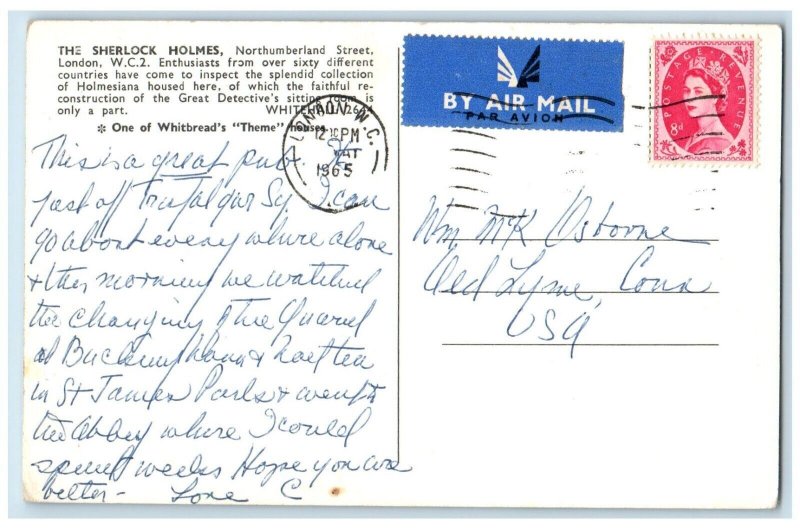 THE SHERLOCK HOLMES, Northumberland Street,
London, W.C.2. Enthusiasts from over sixty different
countries have come to inspect the splendid collection
of Holmesiana housed here, of which the faithful re-
construction of the Great Detective's sitting room is
only a part. WHITEHALL 26
* One of Whitbread's "Theme" houses
This is a great pub.
just off Trafalgar Sq. I can
go about every where alone
& this morning we watched
the changing of the Guard
at Buckingham & had tea
in St James Park & went to
the Abbey where I could
spend weeks Hope you are
better - Love C
LONDON W.C.
12 PM
1965
BY AIR MAIL
PAR AVION
POSTAGE REVENUE
8d
Wm McK Osborne
Old Lyme, Conn
USA